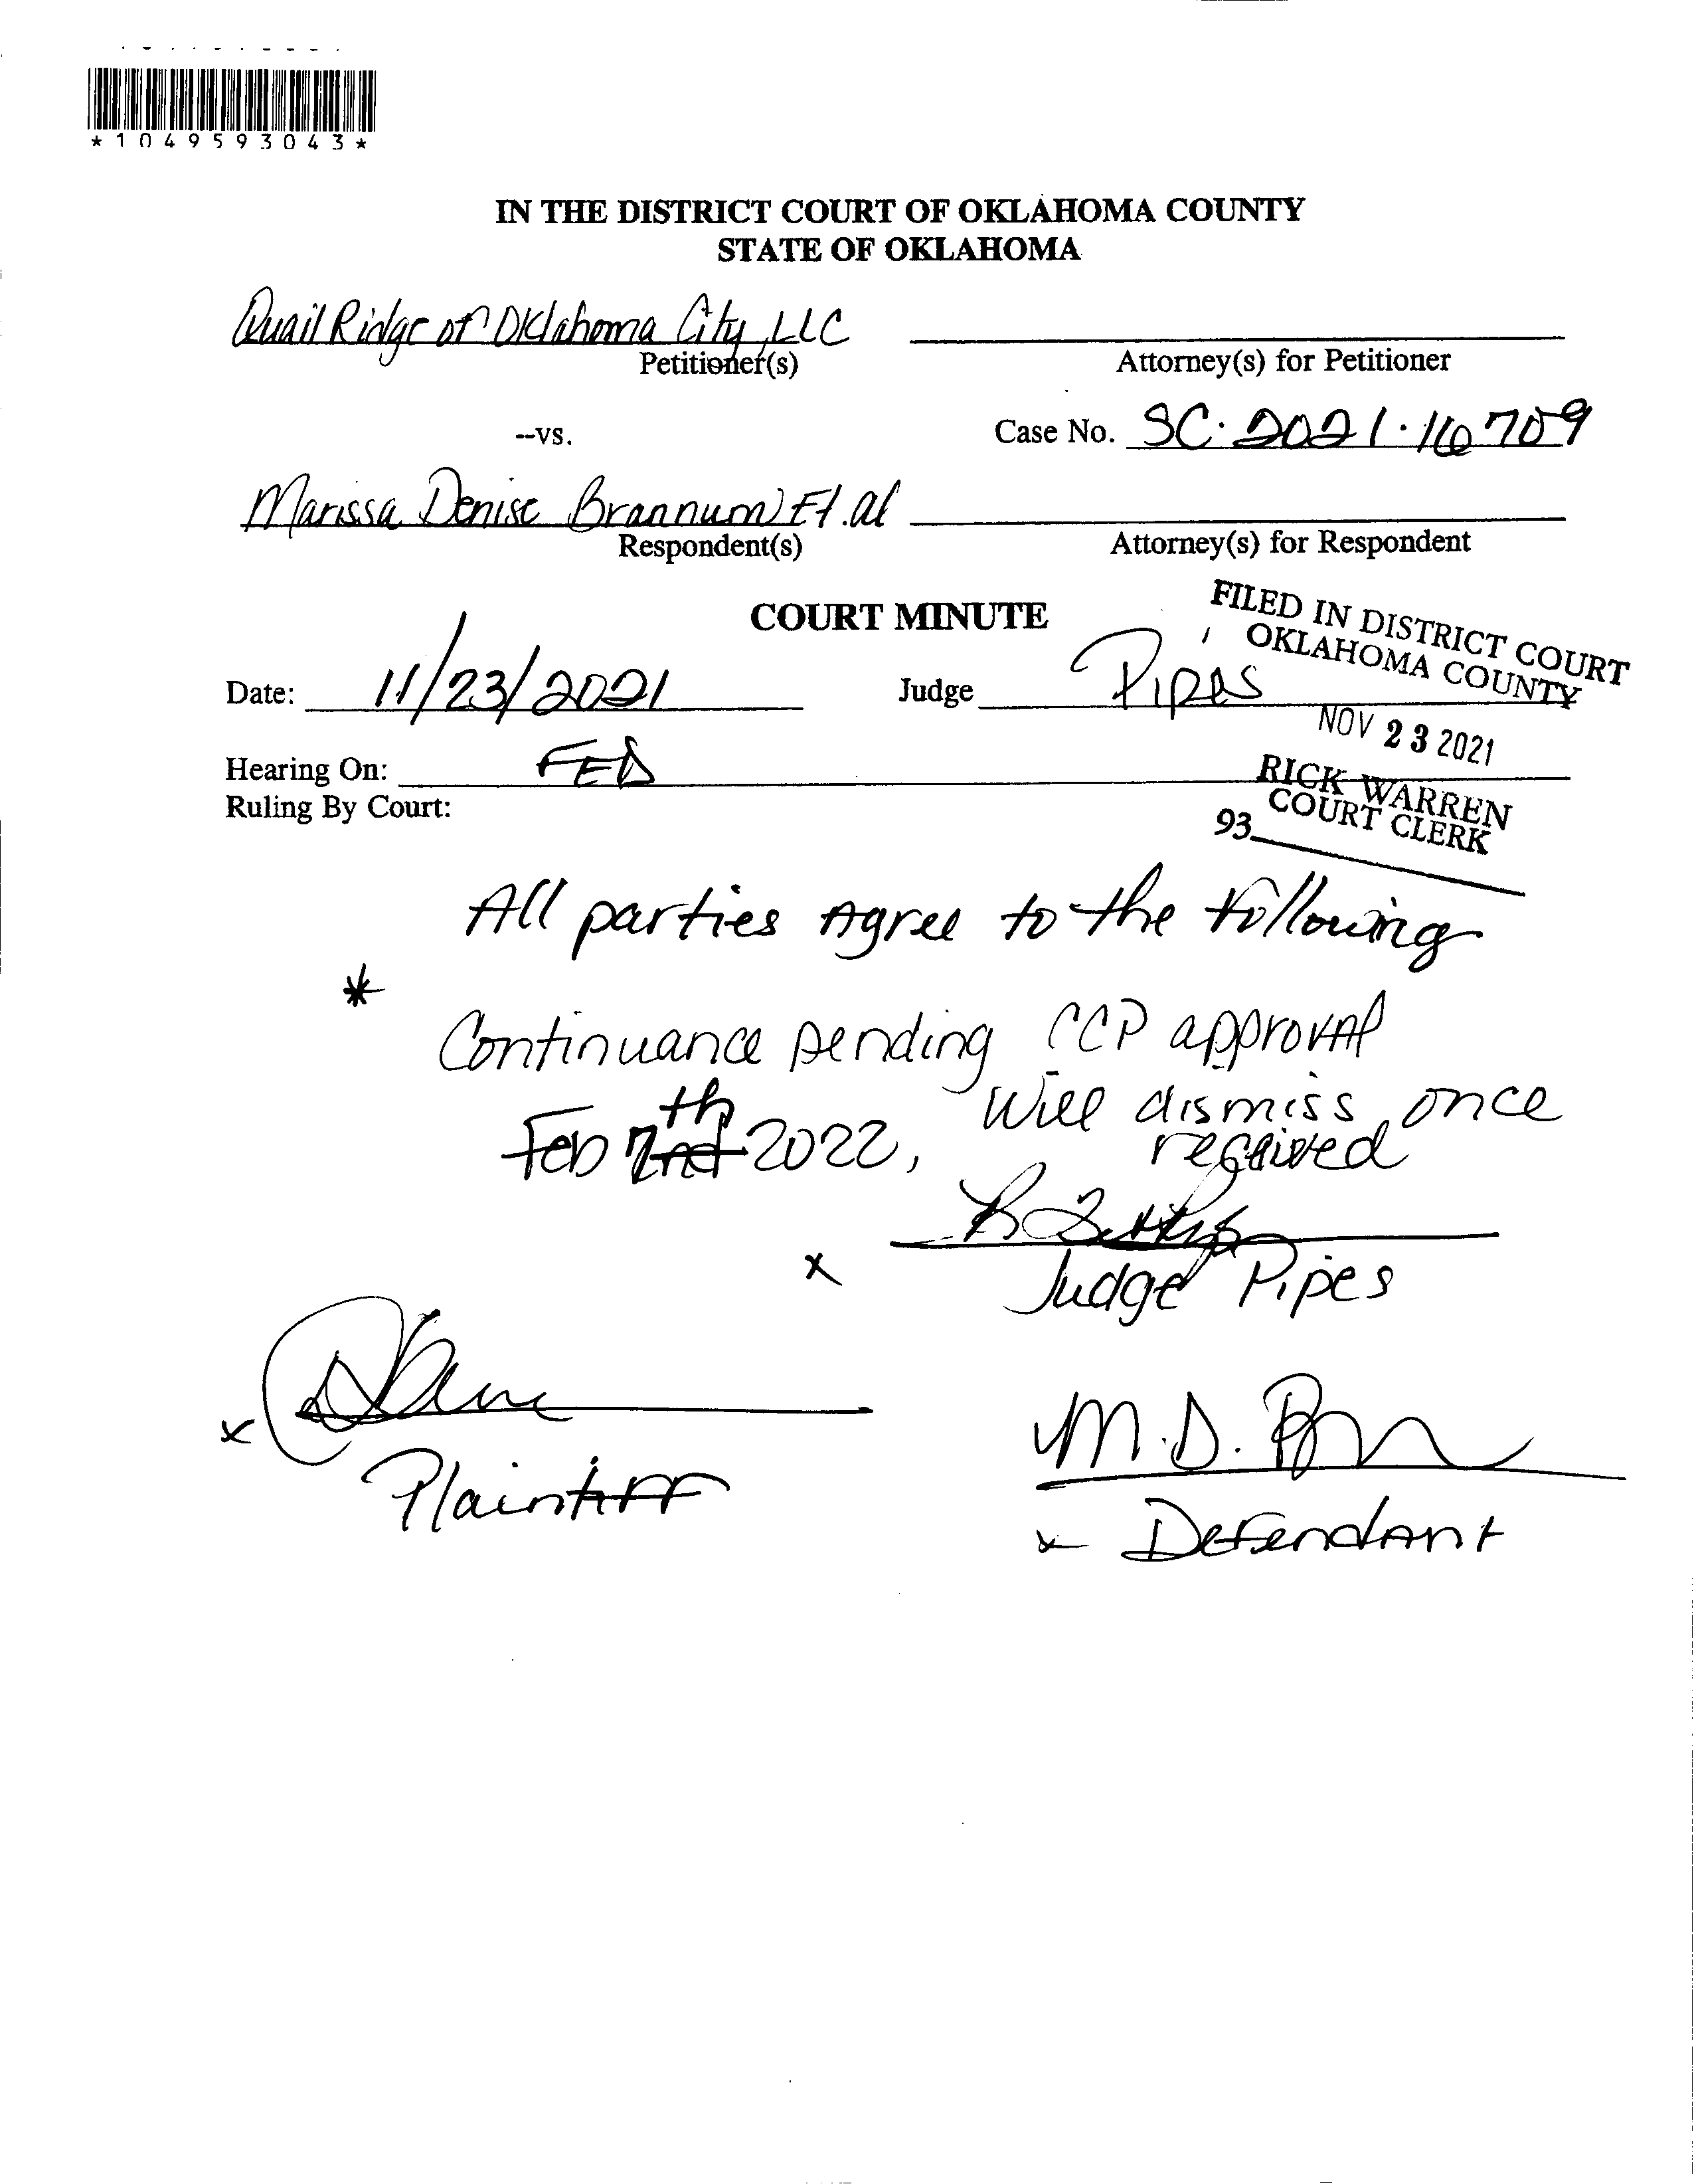 *1049593043*
IN THE DISTRICT COURT OF OKLAHOMA COUNTY
STATE OF OKLAHOMA
Quail Ridge of Oklahoma City, LLC
Petitioner(s)
Attorney(s) for Petitioner
--vs.
Case No. SC.2021.16709
Marissa Denise Brannum Et.al
Respondent(s)
Attorney(s) for Respondent
COURT MINUTE
FILED IN DISTRICT COURT
OKLAHOMA COUNTY
Date: 11/23/2021
Judge Pipes
NOV 23 2021
Hearing On: FED
RICK WARREN
COURT CLERK
Ruling By Court:
93
All parties Agree to the following
*
Continuance pending CCP approval
Feb 7th 2022, Will dismiss once
received
x
Judge Pipes
x
Plaintiff
M.D.
x Defendant